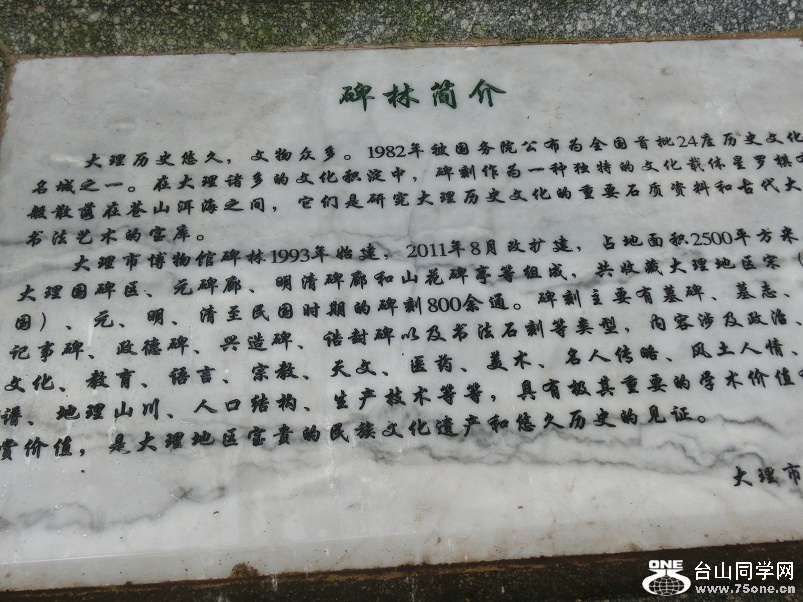 碑林简介
大理历史悠久，文物众多。1982年被国务院公布为全国首批24座历史文化
名城之一。在大理诸多的文化积淀中，碑刻作为一种独特的文化载体星罗棋
般散落在苍山洱海之间，它们是研究大理历史文化的重要石质资料和古代大
书法艺术的宝库。
大理市博物馆碑林1993年始建，2011年8月改扩建，占地面积2500平方米
大理国碑区、元碑廊、明清碑廊和山花碑亭等组成，共收藏大理地区宋（
国）、元、明、清至民国时期的碑刻800余通。碑刻主要有墓碑、墓志、
记事碑、政德碑、兴造碑、诰封碑以及书法石刻等类型，内容涉及政治、
文化、教育、语言、宗教、天文、医药、美术、名人传略、风土人情、
谱、地理山川、人口结构、生产技术等等，具有极其重要的学术价值
赏价值，是大理地区宝贵的民族文化遗产和悠久历史的见证。
大理市
ONE
台山同学网
www.75one.cn